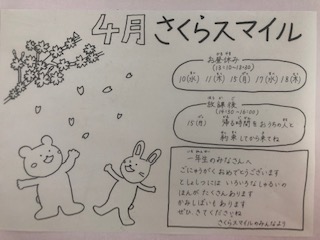 4月 さくらスマイル
お昼休み
(13:10~13:30)
10(水) 11(木) 15(月) 17(水) 18(木)
放課後
15(月) 帰る時間をおうちの人と
約束してから来てね
一年生のみなさんへ
ごにゅうがく おめでとうございます
としょしつには いろいろなしゅるいの
ほんが たくさんあります
かみしばいも あります
ぜひ、きてくださいね
さくらスマイルのみんなより